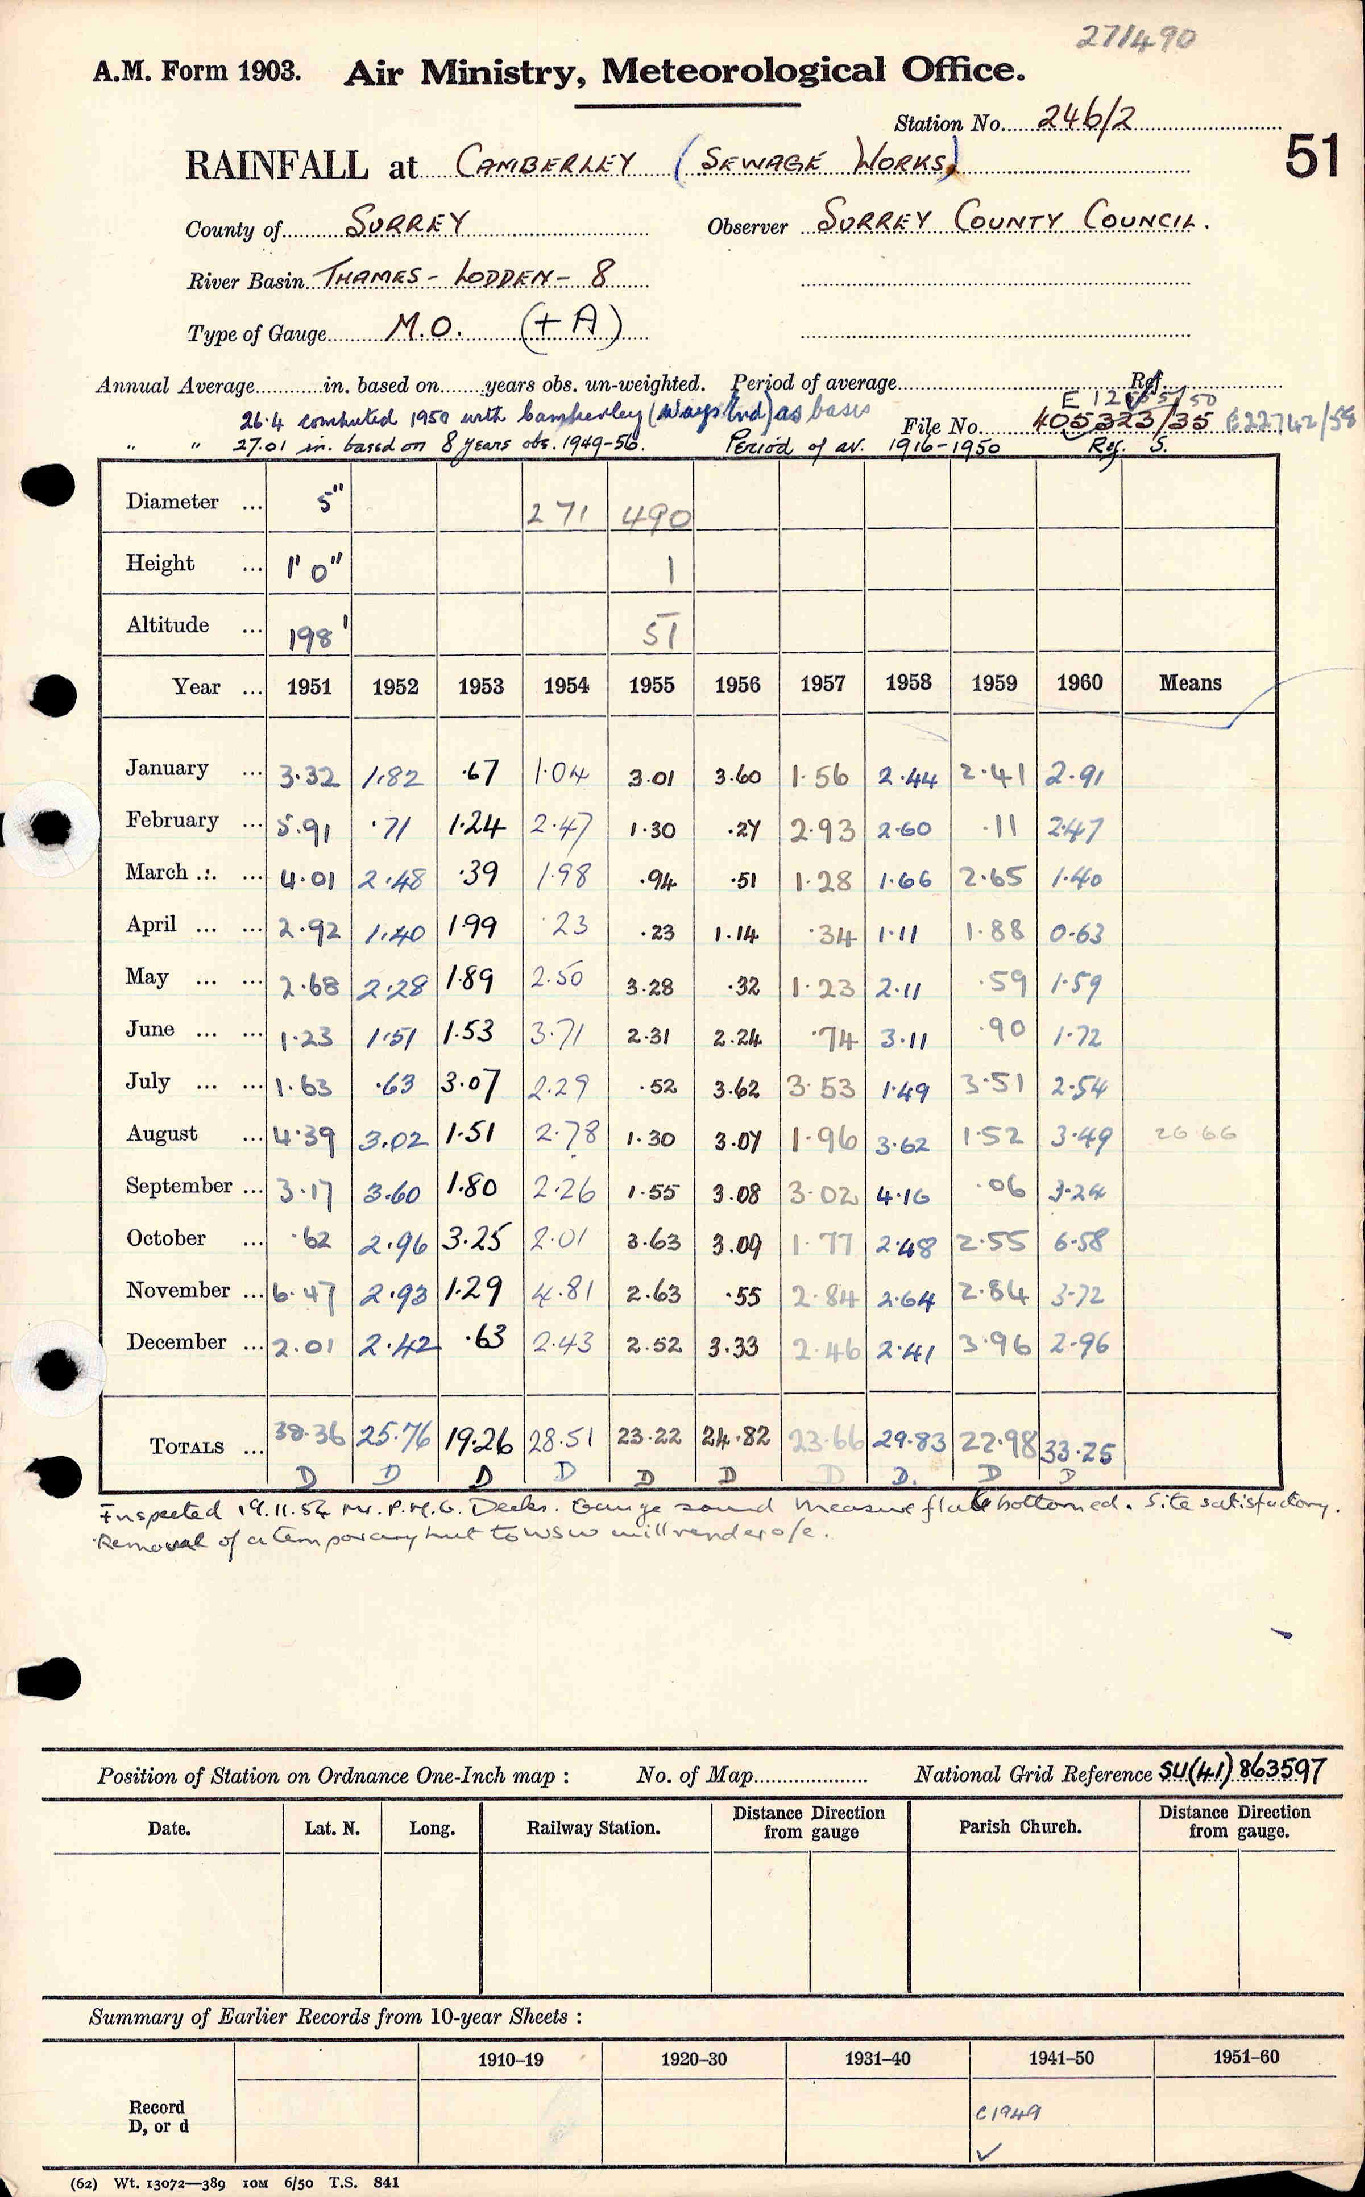 271490
A.M. Form 1903. Air Ministry, Meteorological Office.
Station No. 246/2
51
RAINFALL at CAMBERLEY (SEWAGE WORKS)
County of SURREY Observer SURREY COUNTY COUNCIL.
River Basin THAMES - LODDEN - 8
Type of Gauge M.O. (+ A)
Annual Average in. based on years obs. un-weighted. Period of average Ref.
26.4 computed 1950 with Camberley (Ways End) as basis File No. 405323/35 E22742/58
" " 27.01 in. based on 8 years obs. 1949-56. Period of av. 1916-1950 Reg. S.
Diameter ... 5" 271 490
Height ... 1' 0" 1
Altitude ... 198' 51
Year ... 1951 1952 1953 1954 1955 1956 1957 1958 1959 1960 Means
January ... 3.32 1.82 .67 1.04 3.01 3.60 1.56 2.44 2.41 2.91
February ... 5.91 .71 1.24 2.47 1.30 .27 2.93 2.60 .11 2.47
March ... ... 4.01 2.48 .39 1.98 .94 .51 1.28 1.66 2.65 1.40
April ... ... 2.92 1.40 1.99 .23 .23 1.14 .34 1.11 1.88 0.63
May ... ... 2.68 2.28 1.89 2.50 3.28 .32 1.23 2.11 .59 1.59
June ... ... 1.23 1.51 1.53 3.71 2.31 2.24 .74 3.11 .90 1.72
July ... ... 1.63 .63 3.07 2.29 .52 3.62 3.53 1.49 3.51 2.54
August ... 4.39 3.02 1.51 2.78 1.30 3.07 1.96 3.62 1.52 3.49 26.66
September ... 3.17 3.60 1.80 2.26 1.55 3.08 3.02 4.16 .06 3.24
October ... .62 2.96 3.25 2.01 3.63 3.09 1.77 2.48 2.55 6.58
November ... 6.47 2.93 1.29 4.81 2.63 .55 2.84 2.64 2.84 3.72
December ... 2.01 2.42 .63 2.43 2.52 3.33 2.46 2.41 3.96 2.96
TOTALS ... 38.36 25.76 19.26 28.51 23.22 24.82 23.66 29.83 22.98 33.25
D D D D D D D D. D D
Inspected 19.11.54 Mr. P.M.G. Deeks. Gauge sound measure flat bottomed. Site satisfactory.
Removal of a temporary hut to WSW will render o/e.
Position of Station on Ordnance One-Inch map : No. of Map National Grid Reference SU(41) 863597
Date. Lat. N. Long. Railway Station. Distance Direction from gauge Parish Church. Distance Direction from gauge.
Summary of Earlier Records from 10-year Sheets :
1910–19 1920–30 1931–40 1941–50 1951–60
Record D, or d C1949
(62) Wt. 13072—389 10M 6/50 T.S. 841